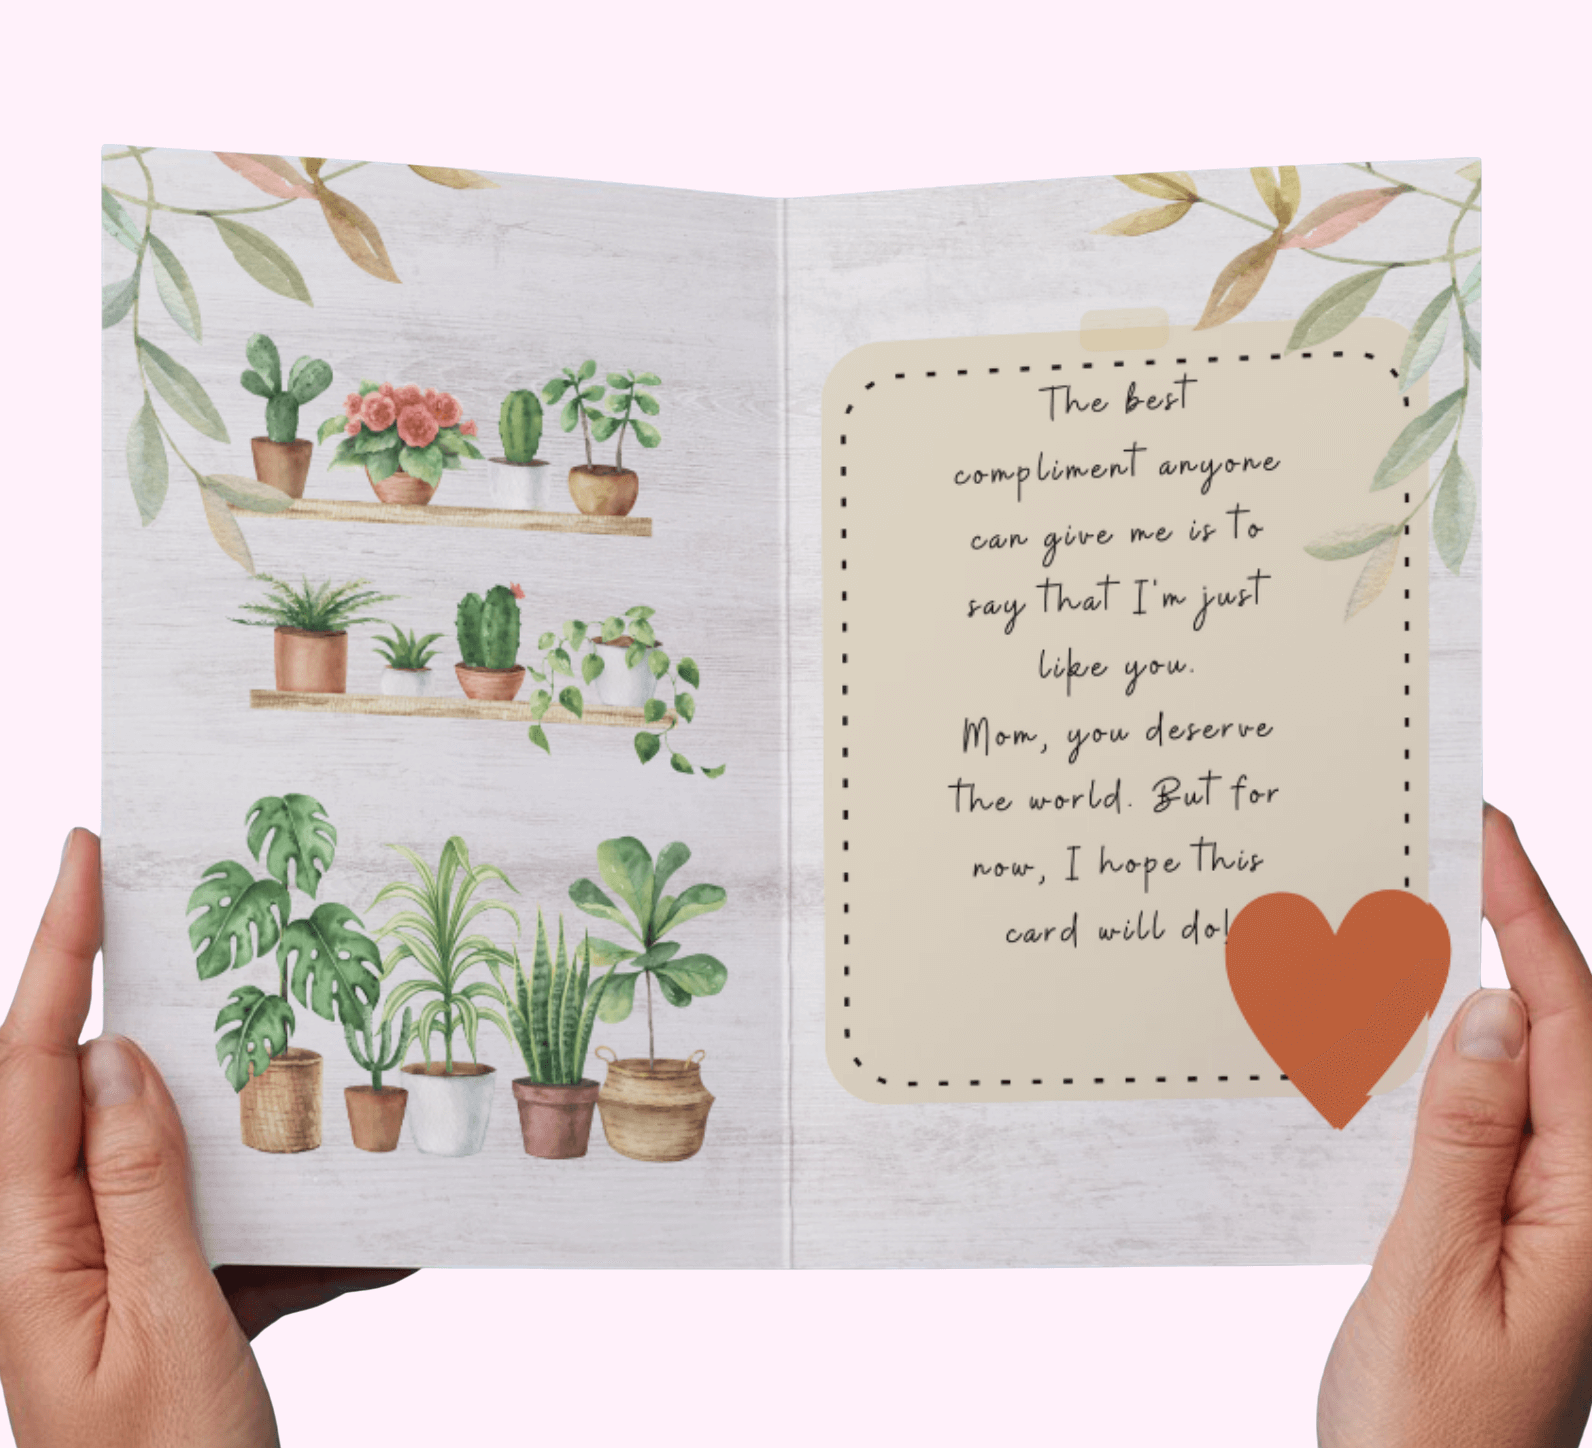 The best
compliment anyone
can give me is to
say that I'm just
like you.
Mom, you deserve
the world. But for
now, I hope this
card will do!